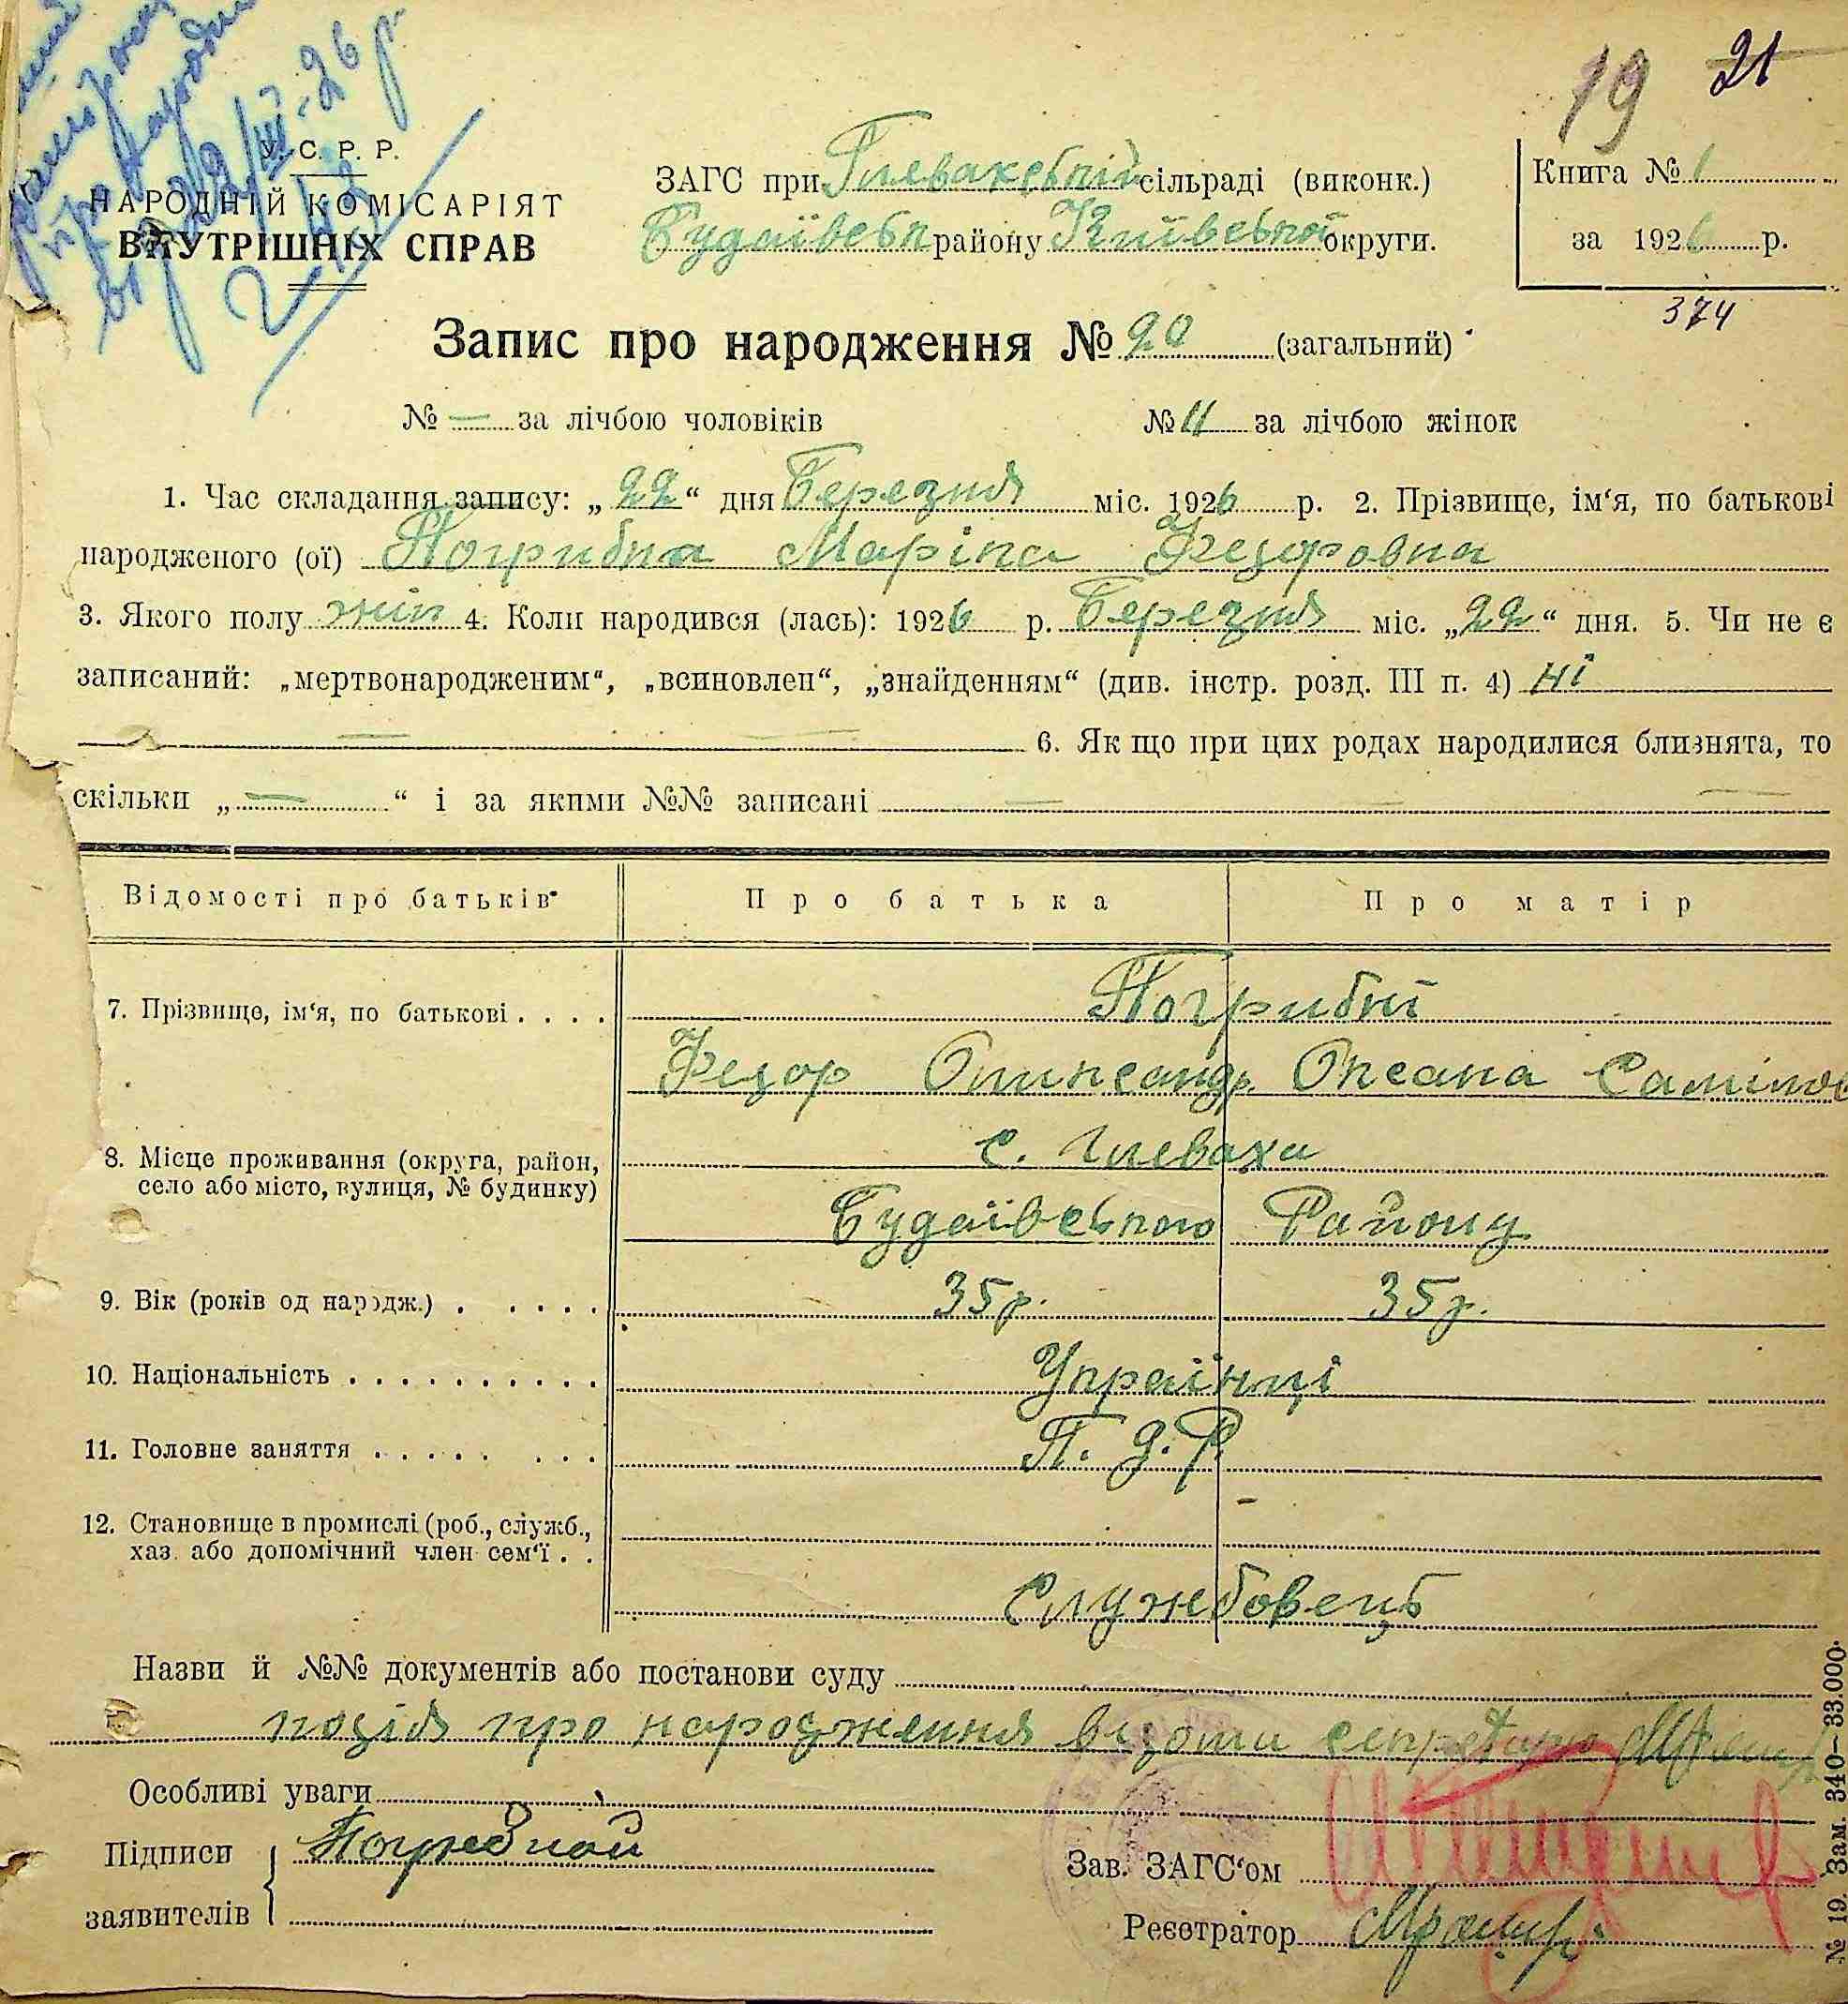 19 21
У. С. Р. Р.
НАРОДНІЙ КОМІСАРІЯТ
ВНУТРІШНІХ СПРАВ
ЗАГС при Глевахській сільраді (виконк.)
Будаївськ району Київської округи.
Книга № 1
за 1926 р.
374
Запис про народження № 20 (загальний)
№ — за лічбою чоловіків № 11 за лічбою жінок
1. Час складання запису: „22“ дня Березня міс. 1926 р. 2. Прізвище, ім‘я, по батькові
народженого (ої) Погрибна Маріна Федоровна
3. Якого полу жін 4. Коли народився (лась): 1926 р. Березня міс. „22“ дня. 5. Чи не є
записаний: „мертвонародженим“, „всиновлен“, „знайденням“ (див. інстр. розд. III п. 4) ні
— — 6. Як що при цих родах народилися близнята, то
скільки „—“ і за якими №№ записані — — —
Відомості про батьків Про батька Про матір
7. Прізвище, ім‘я, по батькові . . . . Погрибні
Федор Олександр. Оксана Самілов
8. Місце проживання (округа, район, с. Глеваха
село або місто, вулиця, № будинку)
Будаївського Району
9. Вік (років од народж.) . . . . . 35р. 35р.
10. Національність . . . . . . . . . . Українці
11. Головне заняття . . . . . . . . П. Д. Р.
12. Становище в промислі (роб., служб.,
хаз. або допомічний член сем‘ї . .
Службовець
Назви й №№ документів або постанови суду
подія про народження відома секретарю
Особливі уваги
Підписи Погребной
заявителів
Зав. ЗАГС‘ом
Реєстратор
№ 19 Зам. 340—33.000.